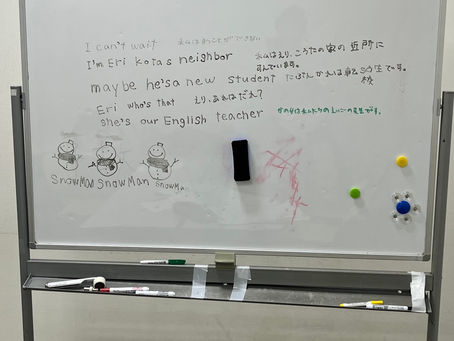 I can't wait 私は待つことができない
I'm Eri kotas neighbor 私はえり、こうたの家の近所に
すんでいます。
maybe he's a new student たぶん かれは転校生です。
Eri who's that えり、あれはだれ?
she's our English teacher かの女は私たちのえいごの先生です。
SnowMan SnowMan SnowMan